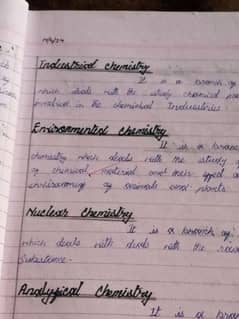 Industrial Chemistry
It is a branch of
which deals with the study chemical
in the chemichal Industries.
Environmental Chemistry
It is a branc
chemistry which deals with the study
of chemical material and their effect o
environment of animals and plants.
Nuclear Chemistry
It is a branch of
which deals with deals with the
Substance.
Analypical Chemistry
It is a bran